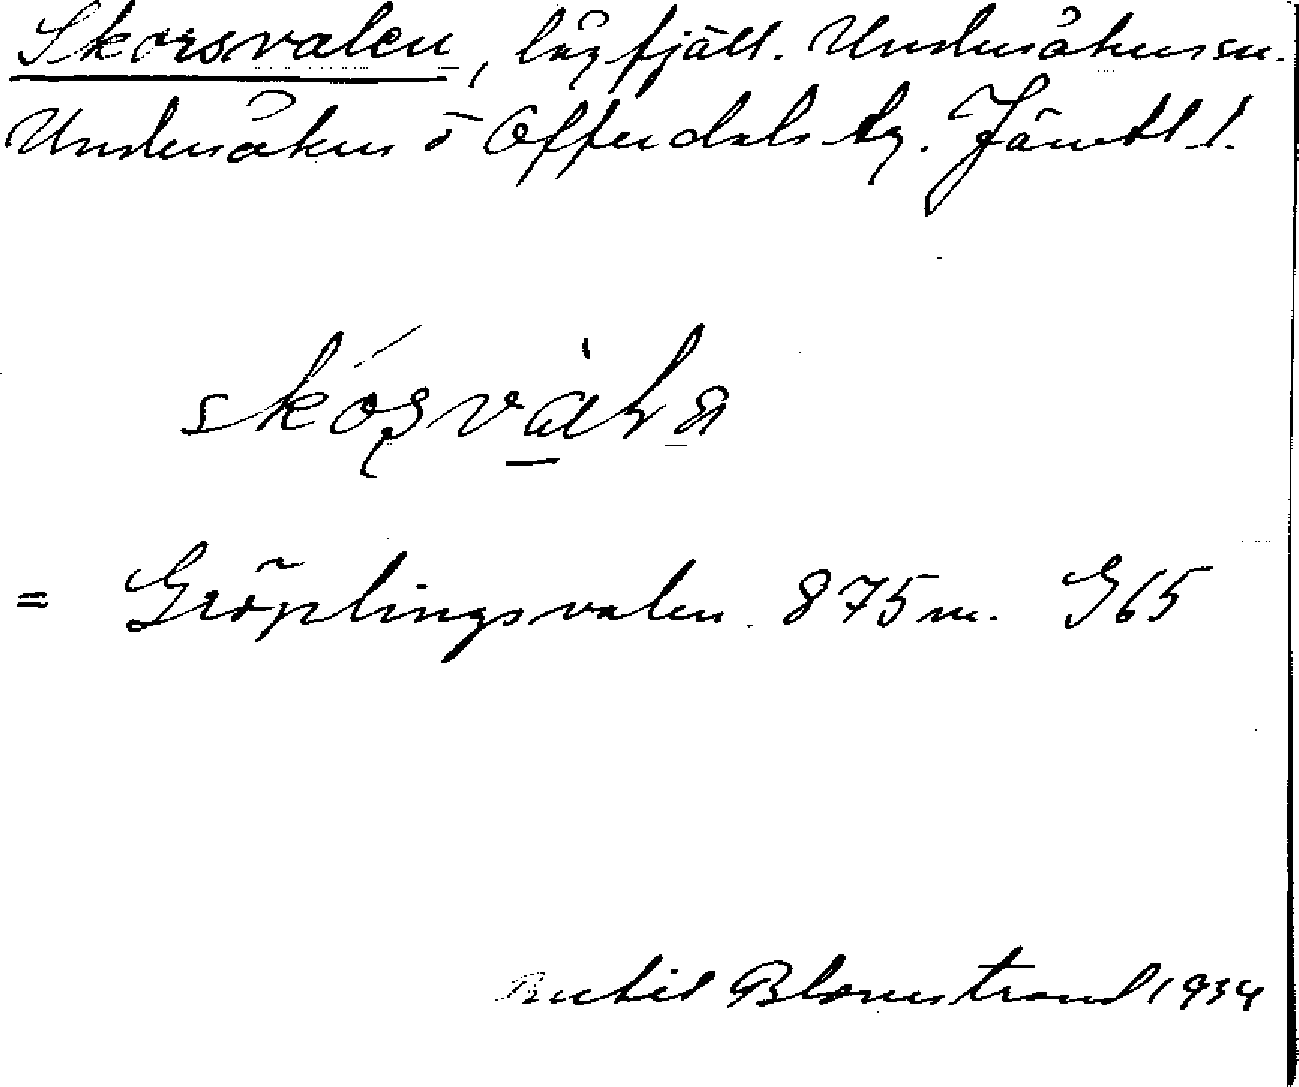 Skorsvalen, lågfjäll. Undersåkers sn.
Undersåkers o Offerdals tg. Jämtl l.
skós̩vàlₐ
= Gröplingsvalen 875 m. G65
Bertil Blomstrand 1934